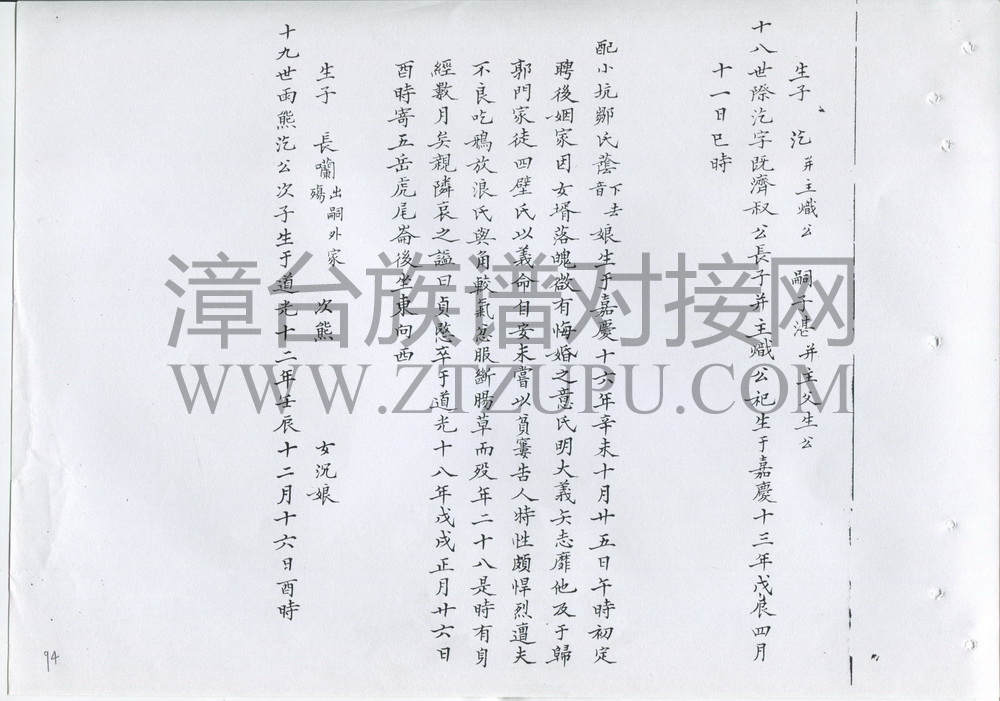 生子 汔并主熾公 嗣子湛并主文生公
十八世際汔字既濟叔公長子并主熾公祀生于嘉慶十三年戊辰四月
十一日巳時
配小坑鄭氏蔭下去音娘生于嘉慶十六年辛未十月廿五日午時初定
聘後姻家因女壻落魄欲有悔婚之意氏明大義矢志靡他及于歸
郭門家徒四壁氏以義命自安未嘗以貧窶告人特性頗悍烈遭夫
不良吃鴉放浪氏與角較氣忿服斷腸草而歿年二十八是時有身
經數月矣親隣哀之謚曰貞愍卒于道光十八年戊戌正月廿六日
酉時寄五岳虎尾崙後坐東向西
生子 長囒出嗣外家殤 次熊 女況娘
十九世雨熊汔公次子生于道光十二年壬辰十二月十六日酉時
94
漳台族谱对接网
WWW.ZTZUPU.COM